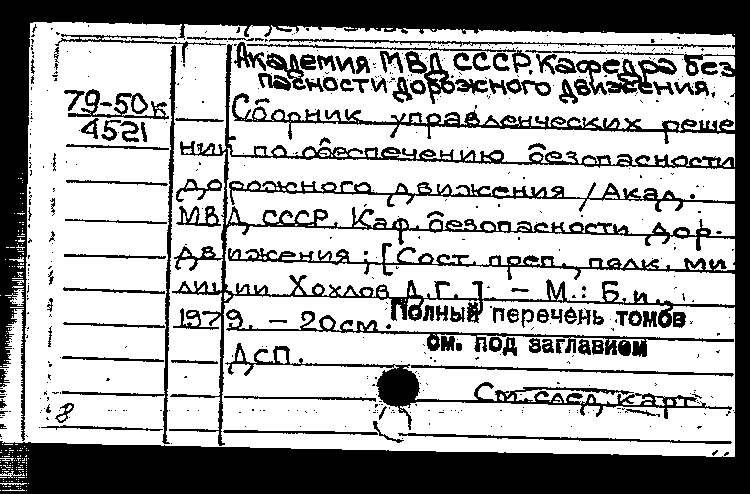 Академия МВД СССР. Кафедра без
пасности дорожного движения.
79-50к
4521
Сборник управленческих реше
ний по обеспечению безопасности
дорожного движения /Акад.
МВД СССР. Каф. безопасности дор.
движения; [Сост. преп., палк. ми
лиции Хохлов Д.Г.]. – М.: Б.и.,
1979. – 20см.
Полный перечень томов
см. под заглавием
ДСП.
См. след. карт.
8